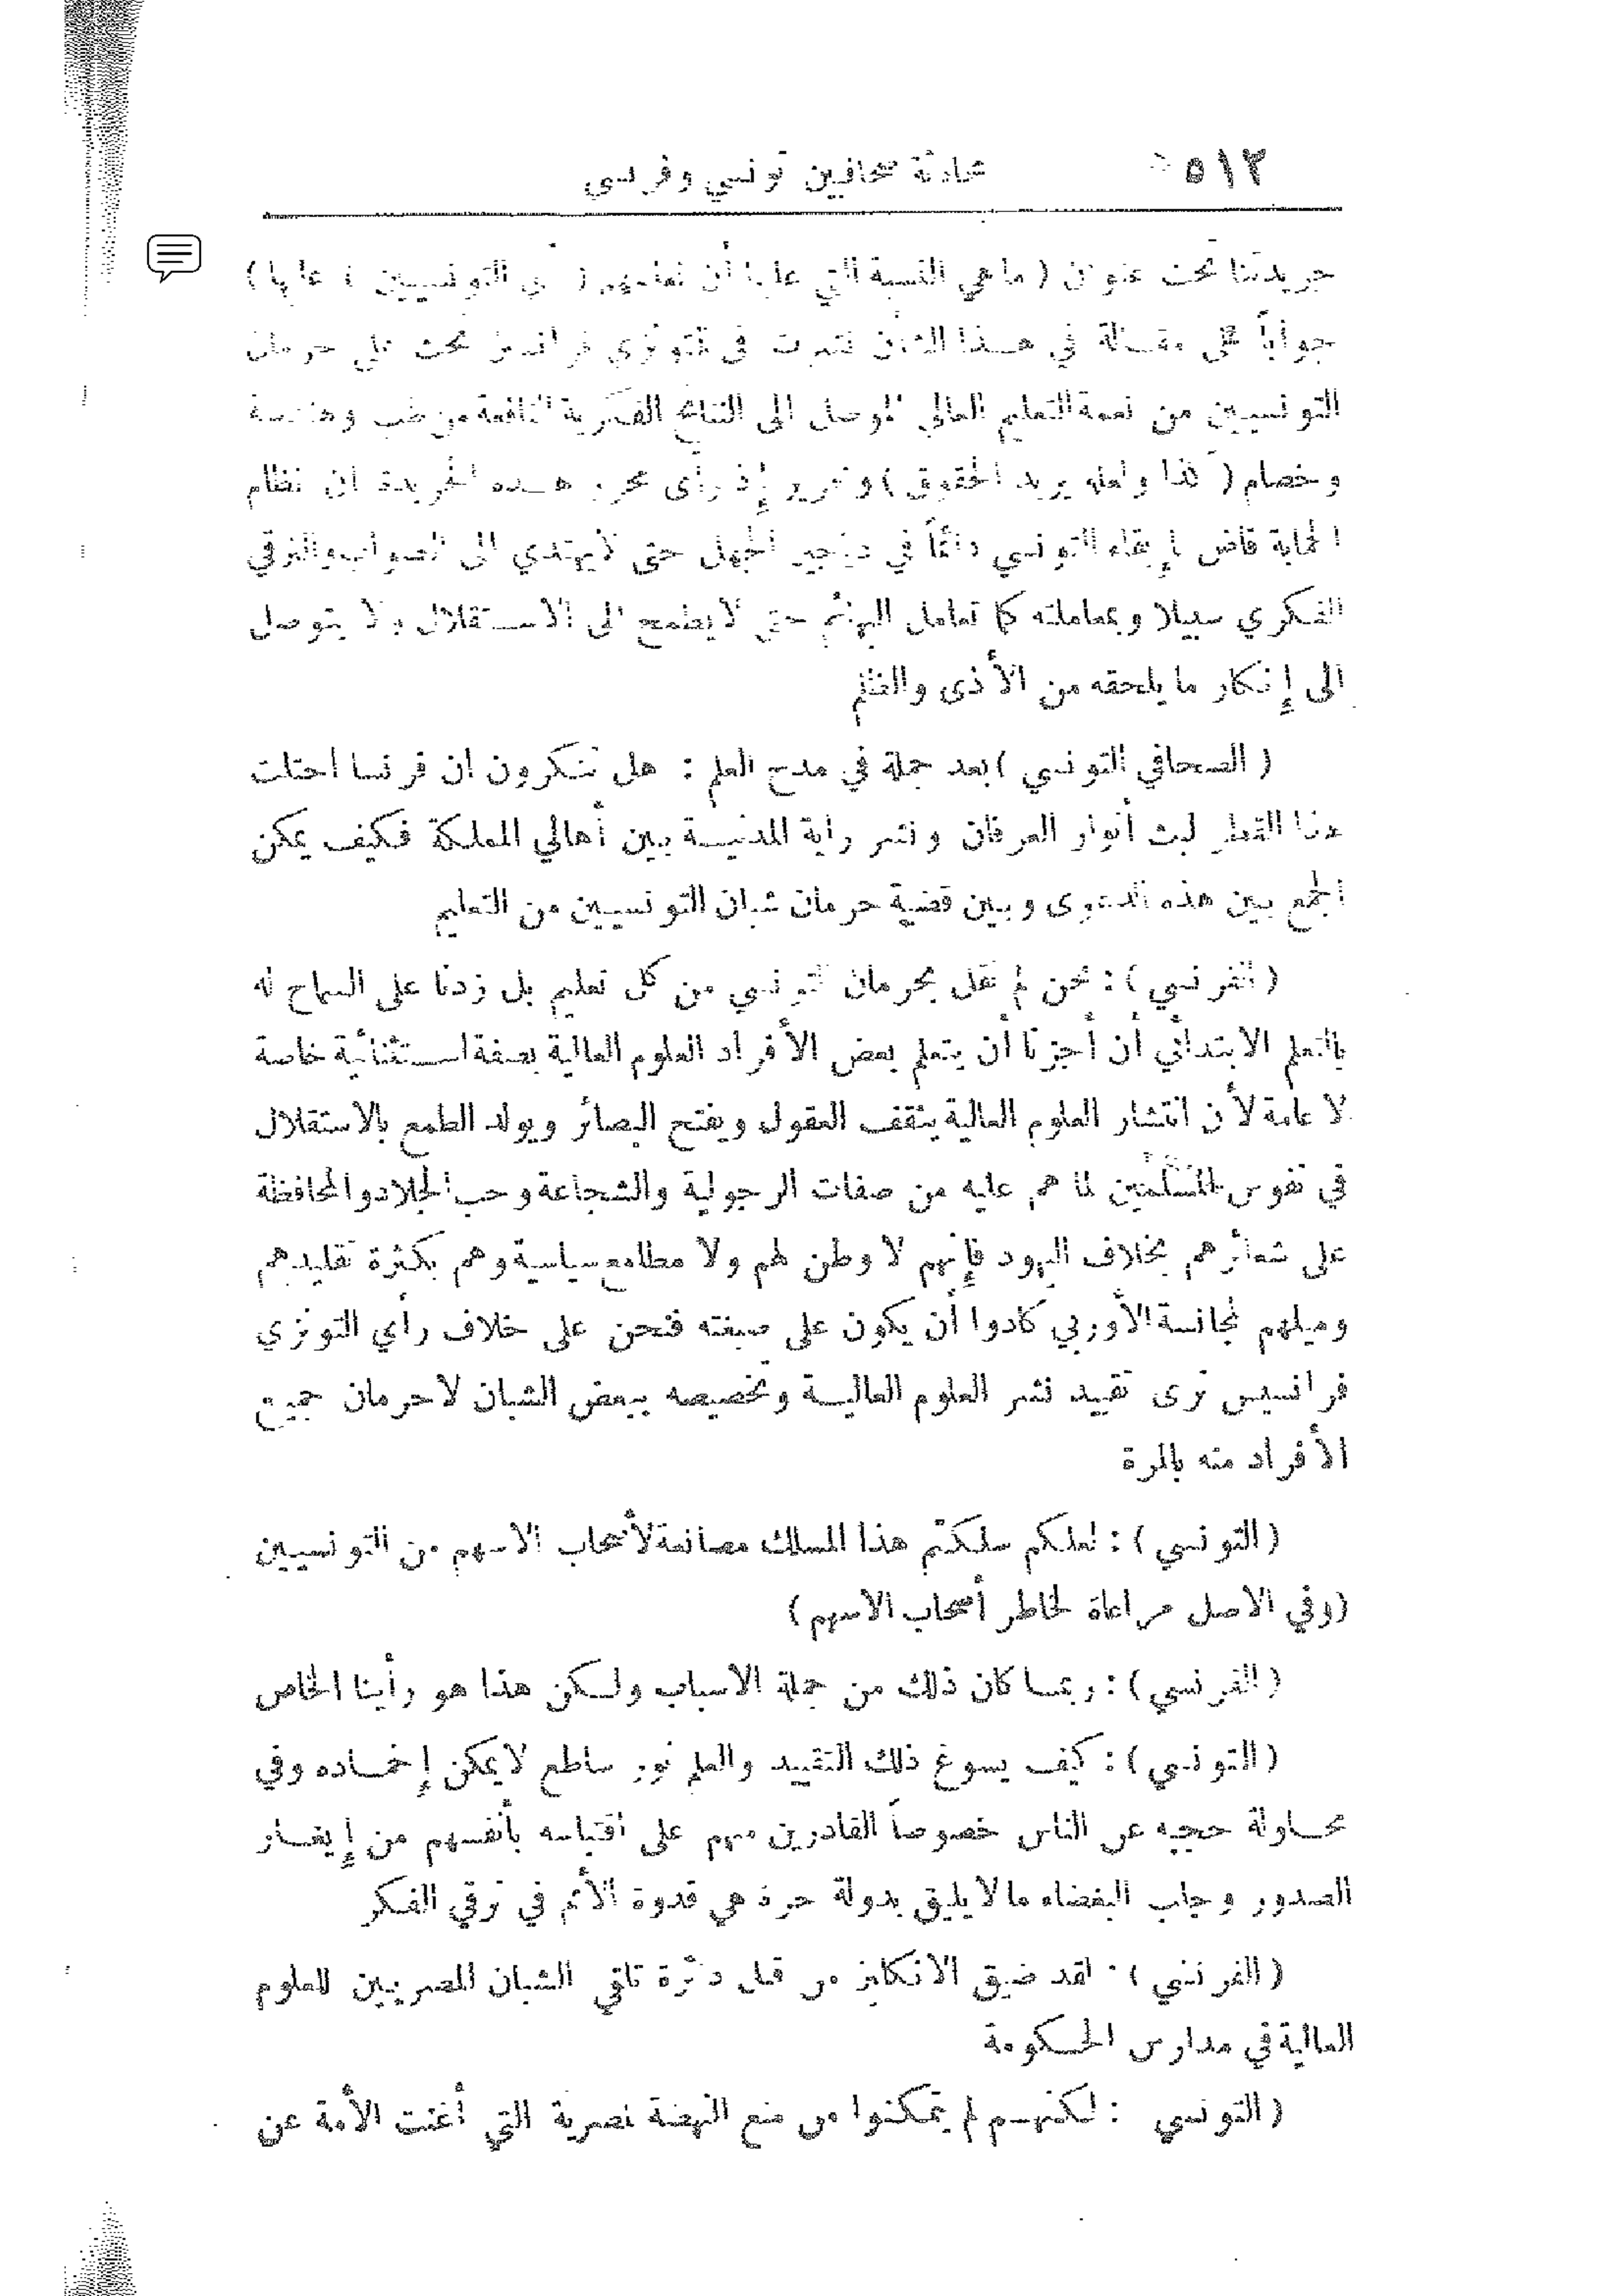 ٥١٢ محادثة صحافيين تونسي وفرنسي
جريدتنا تحت عنوان ( ما هي النسبة التي علينا أن نعاملهم ( أي التونسيين ) عليها )
جواباً على مقالة في هذا الشأن نشرت في التونزي فرانسيز تحث على حرمان
التونسيين من نعمة التعليم العالي الموصل الى النتائج الفكرية النافعة من طب وهندسة
وخصام ( كذا ولعله يريد الحقوق ) و تحرير إذ رأى محرر هذه الجريدة ان نظام
الحماية قاض بإبقاء التونسي دائماً في دياجير الجهل حتى لا يهتدي الى الصواب والترقي
الفكري سبيلا وبمعاملته كما تعامل البهائم حتى لا يطمح الى الاستقلال ولا يتوصل
الى إنكار ما يلحقه من الأذى والظلم
( الصحافي التونسي ) بعد جملة في مدح العلم : هل تنكرون ان فرنسا احتلت
هذا القطر لبث أنوار العرفان ونشر راية المدنية بين أهالي المملكة فكيف يمكن
الجمع بين هذه الدعوى وبين قضية حرمان شبان التونسيين من التعليم
( الفرنسي ) : نحن لم نقل بحرمان التونسي من كل تعليم بل زدنا على السماح له
بالتعلم الابتدائي أن أجزنا أن يتعلم بعض الأفراد العلوم العالية بصفة استثنائية خاصة
لا عامة لأن انتشار العلوم العالية يثقف العقول ويفتح البصائر ويولد الطمع بالاستقلال
في نفوس المسلمين لما هم عليه من صفات الرجولية والشجاعة وحب الجلاد والمحافظة
على شعائرهم بخلاف اليهود فإنهم لا وطن لهم ولا مطامع سياسية وهم بكثرة تقليدهم
وميلهم لمجانسة الأوربي كادوا أن يكون على صبغته فنحن على خلاف رأي التونزي
فرانسيس نرى تقييد نشر العلوم العالية وتخصيصه ببعض الشبان لا حرمان جميع
الأفراد منه بالمرة
( التونسي ) : لعلكم سلكتم هذا المسلك مصانعة لأصحاب الاسهم من التونسيين
(وفي الاصل مراعاة لخاطر أصحاب الاسهم)
( الفرنسي ) : ربما كان ذلك من جملة الاسباب ولكن هذا هو رأينا الخاص
( التونسي ) : كيف يسوغ ذلك التقييد والعلم نور ساطع لا يمكن إخماده وفي
محاولة حجبه عن الناس خصوصاً القادرين منهم على اقتباسه بأنفسهم من إيغار
الصدور وجلب البغضاء ما لا يليق بدولة حرة هي قدوة الأمم في ترقي الفكر
( الفرنسي ) : لقد ضيق الانكليز من قبل دائرة تلقي الشبان المصريين للعلوم
العالية في مدارس الحكومة
( التونسي : لكنهم لم يتمكنوا من منع النهضة المصرية التي أغنت الأمة عن